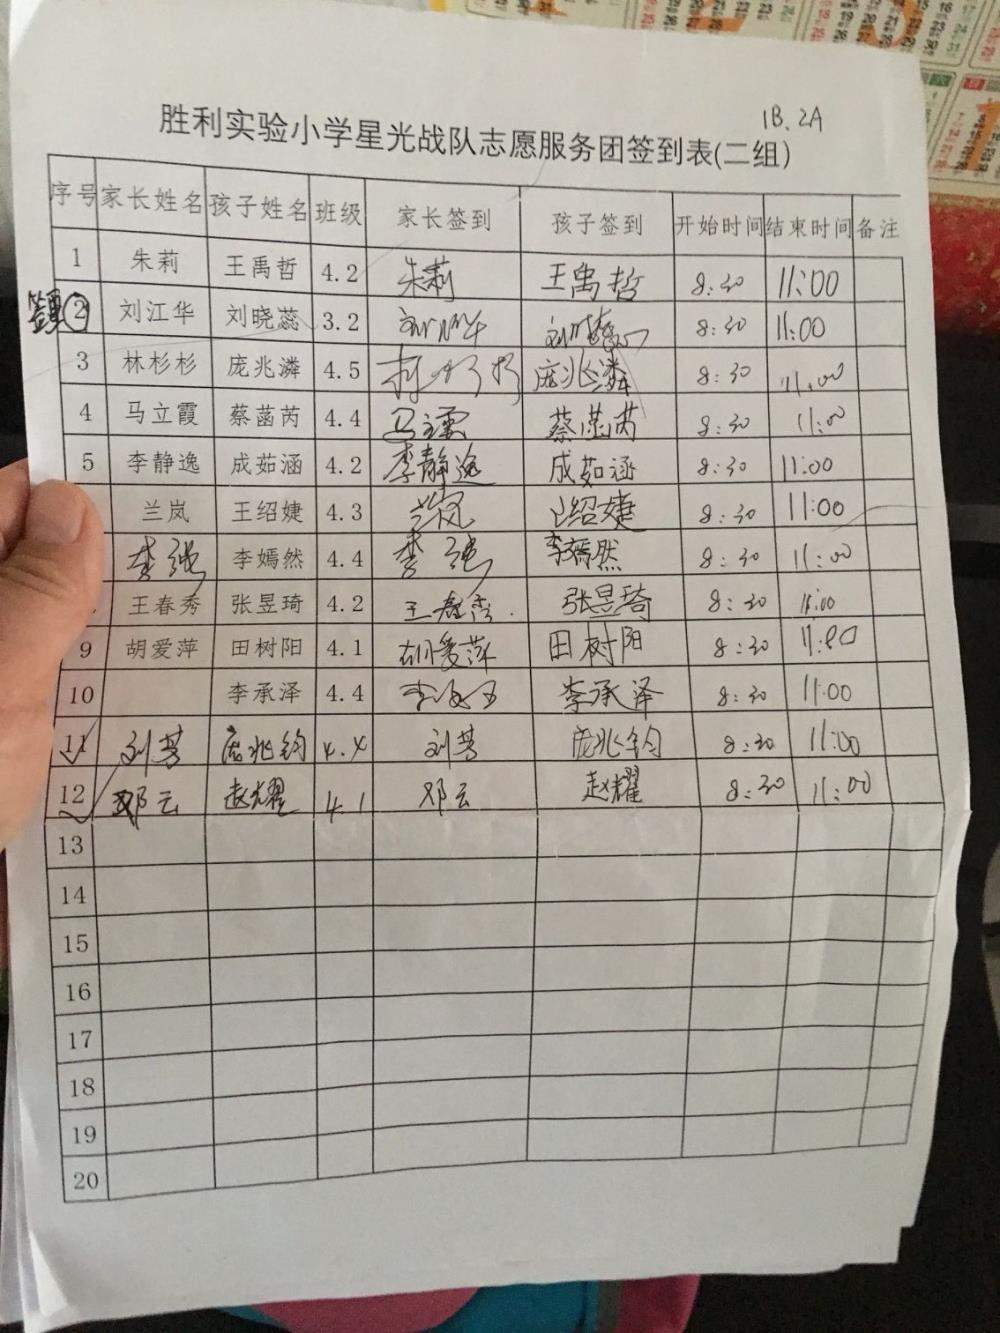 1B. 2A
胜利实验小学星光战队志愿服务团签到表(二组)
序号 家长姓名 孩子姓名 班级 家长签到 孩子签到 开始时间 结束时间 备注
1 朱莉 王禹哲 4.2 朱莉 王禹哲 8:30 11:00
2 刘江华 刘晓蕊 3.2 刘江华 刘晓蕊 8:30 11:00
3 林杉杉 庞兆潾 4.5 林杉杉 庞兆潾 8:30 11:00
4 马立霞 蔡菡芮 4.4 马立霞 蔡菡芮 8:30 11:00
5 李静逸 成茹涵 4.2 李静逸 成茹涵 8:30 11:00
兰岚 王绍婕 4.3 兰岚 王绍婕 8:30 11:00
李强 李嫣然 4.4 李强 李嫣然 8:30 11:00
王春秀 张昱琦 4.2 王春秀 张昱琦 8:30 11:00
9 胡爱萍 田树阳 4.1 胡爱萍 田树阳 8:30 11:00
10 李承泽 4.4 李承泽 8:30 11:00
11 刘芳 庞兆钧 4.4 刘芳 庞兆钧 8:30 11:00
12 邓云 赵耀 4.1 邓云 赵耀 8:30 11:00
13
14
15
16
17
18
19
20